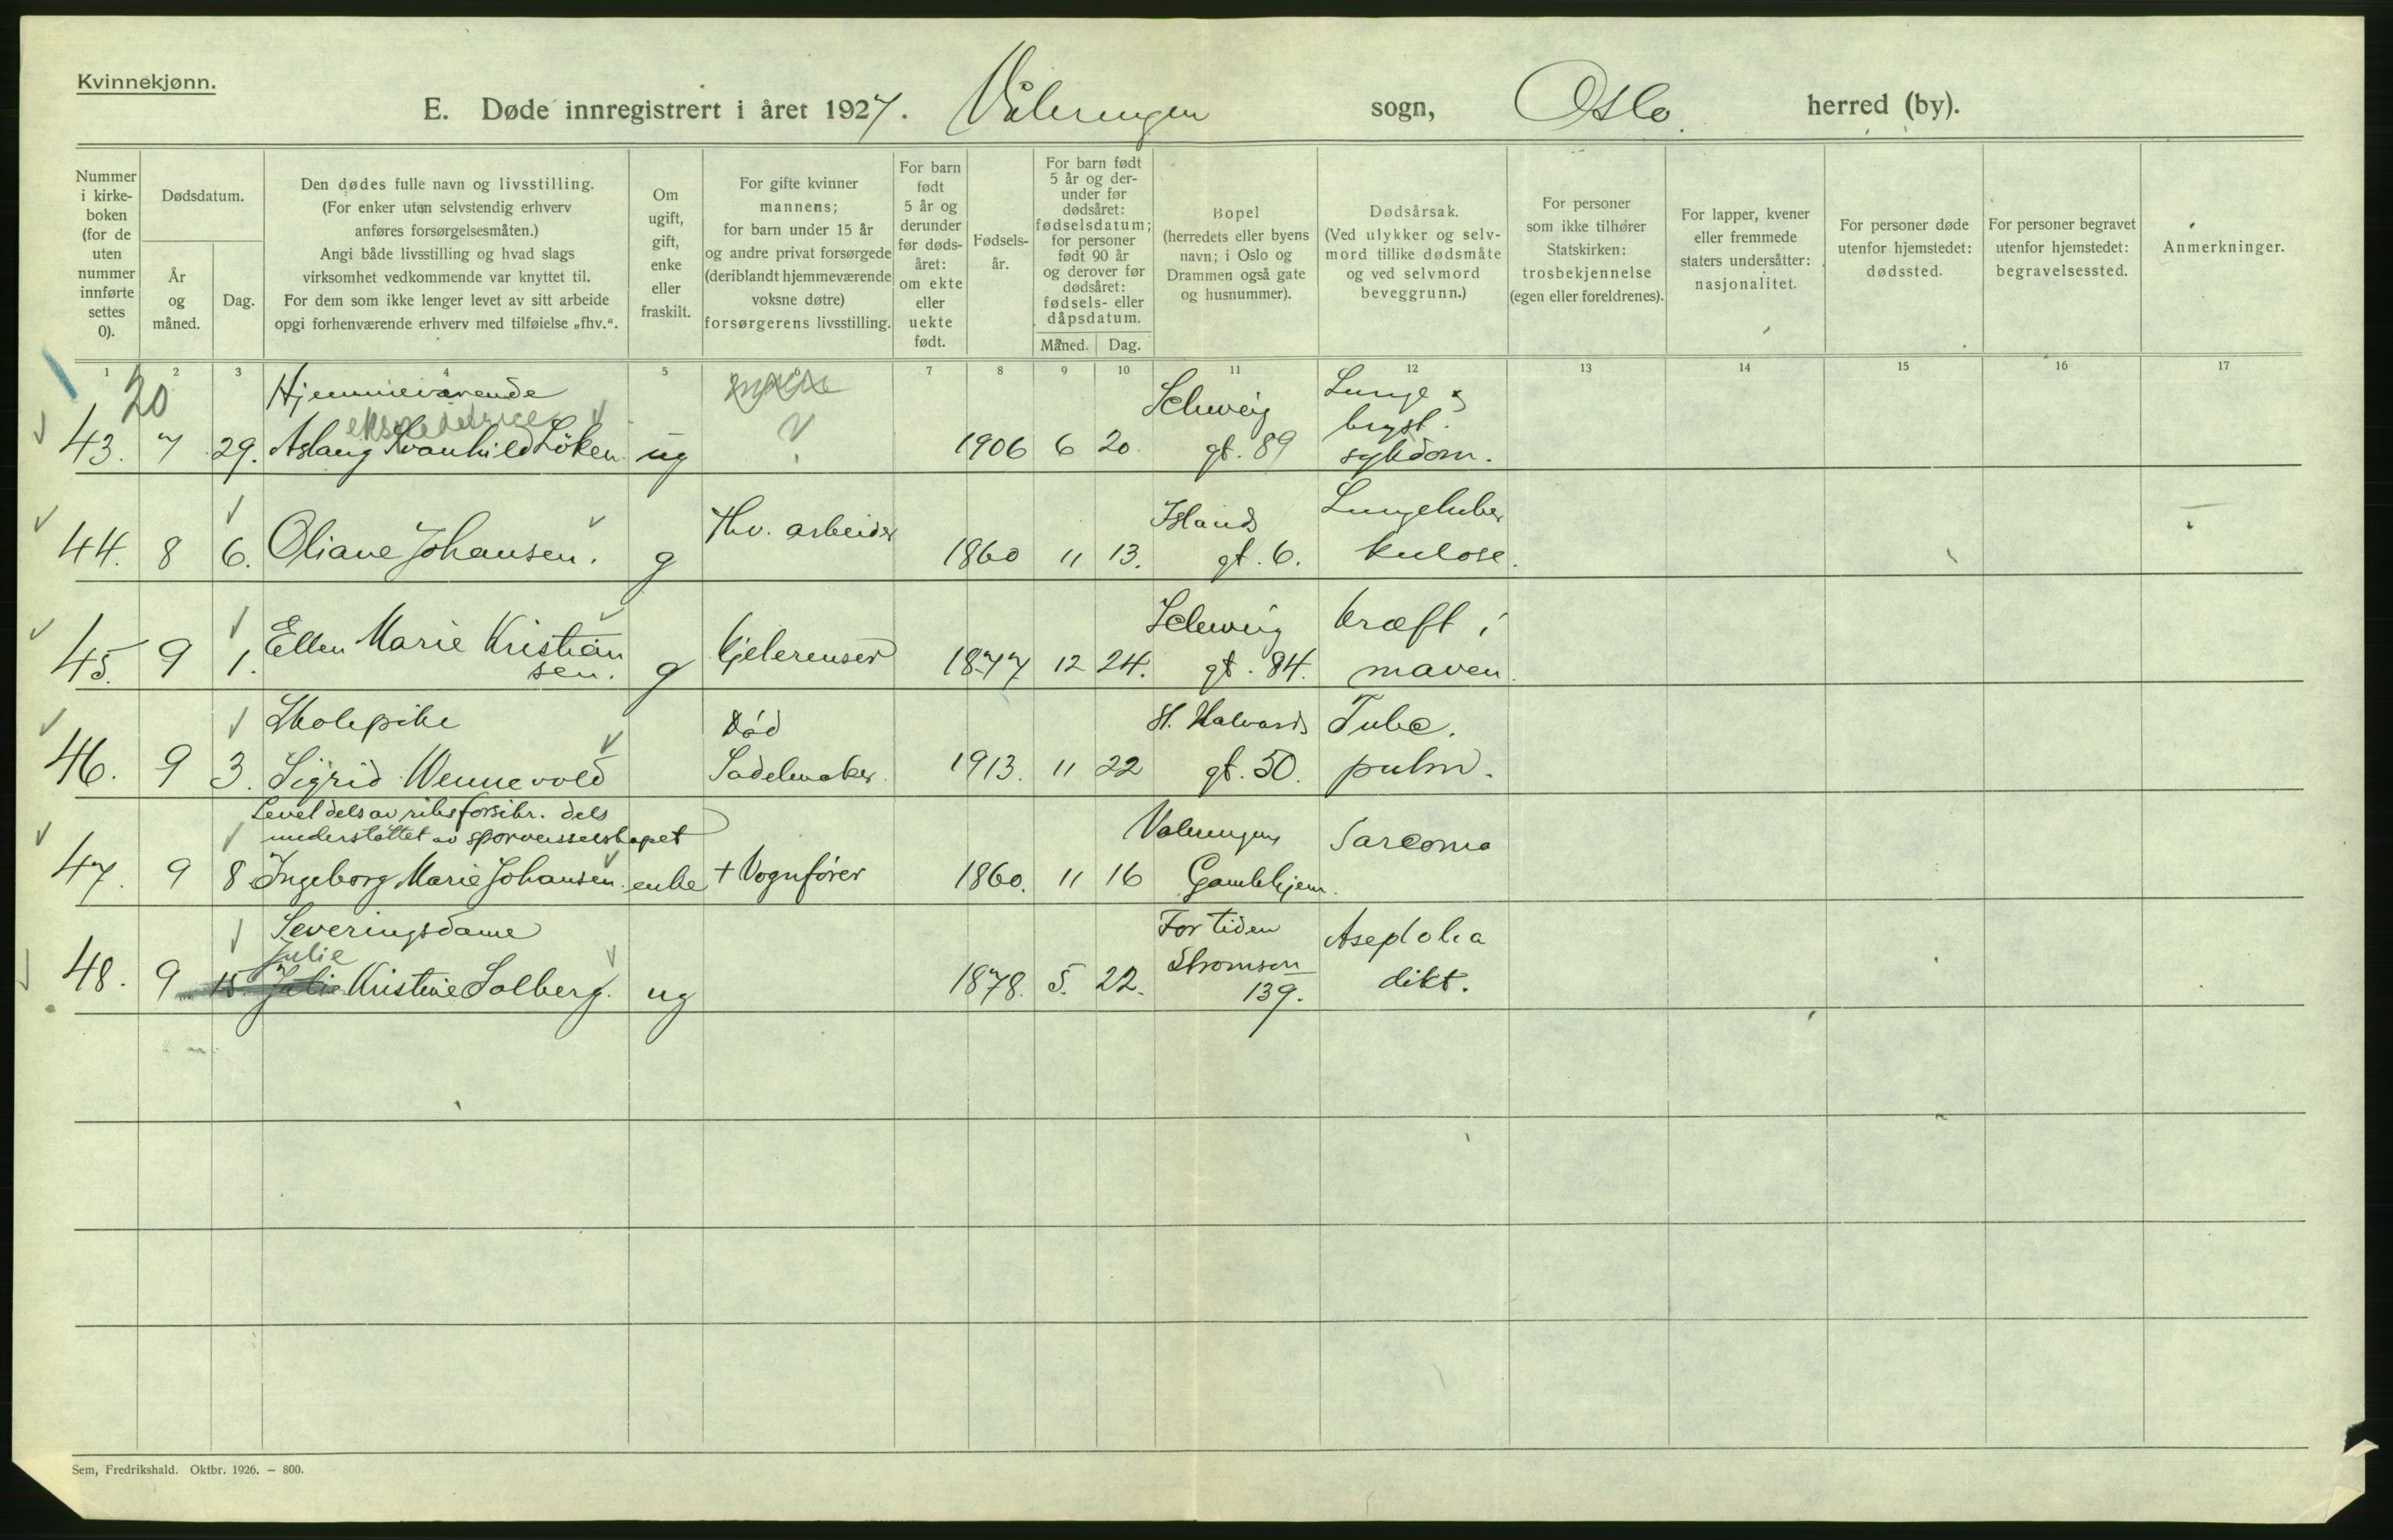 Kvinnekjønn.
E. Døde innregistrert i året 1927. Våleringen sogn, Oslo herred (by).
Nummer i kirke-boken (for de uten nummer innførte settes 0).
Dødsdatum.
År og måned.
Dag.
Den dødes fulle navn og livsstilling.
(For enker uten selvstendig erhverv
anføres forsørgelsesmåten.)
Angi både livsstilling og hvad slags
virksomhet vedkommende var knyttet til.
For dem som ikke lenger levet av sitt arbeide
opgi forhenværende erhverv med tilføielse „fhv.“.
Om ugift, gift, enke eller fraskilt.
For gifte kvinner
mannens;
for barn under 15 år
og andre privat forsørgede
(deriblandt hjemmeværende
voksne døtre)
forsørgerens livsstilling.
For barn født 5 år og derunder før døds-året: om ekte eller uekte født.
Fødsels-år.
For barn født
5 år og der-
under før
dødsåret:
fødselsdatum;
for personer
født 90 år
og derover før
dødsåret:
fødsels- eller
dåpsdatum.
Måned. Dag.
Bopel
(herredets eller byens
navn; i Oslo og
Drammen også gate
og husnummer).
Dødsårsak.
(Ved ulykker og selv-
mord tillike dødsmåte
og ved selvmord
beveggrunn.)
For personer
som ikke tilhører
Statskirken:
trosbekjennelse
(egen eller foreldrenes).
For lapper, kvener
eller fremmede
staters undersåtter:
nasjonalitet.
For personer døde
utenfor hjemstedet:
dødssted.
For personer begravet
utenfor hjemstedet:
begravelsessted.
Anmerkninger.
1 2 3 4 5 7 8 9 10 11 12 13 14 15 16 17
20 Hjemmeværende Schweig Lunge &
ekspeditrice bryst.
43. 7 29. Aslaug Svanhild Löken. ug ? 1906 6 20. gt. 89 sykdom.
Fhv. arbeider Islands Lungetuber
44. 8 6. Oliane Johansen. g 1860 11 13. gt. 6. kulose.
Ellen Marie Kristian Schweig Kræft i
45. 9 1. sen. g Gjelerenser 1877 12 24. gt. 84. maven.
Skolepike Död St. Halvards Tube.
46. 9 3. Sigrid Wennevold Sadelmaker. 1913. 11 22 gt. 50. pulm.
Levet dels av riksforsikr. dels
understöttet av sporveisselskapet Valeringens Sarcoma
47. 9 8 Ingeborg Marie Johansen. enke + Vognfører 1860. 11 16 Gamlehjem.
Severingsdame For tiden
Julie Strømsvn
48. 9 15 Kristine Solberg. ug 1878. 5. 22. 139. dikt.
Sem, Fredrikshald. Oktbr. 1926. — 800.